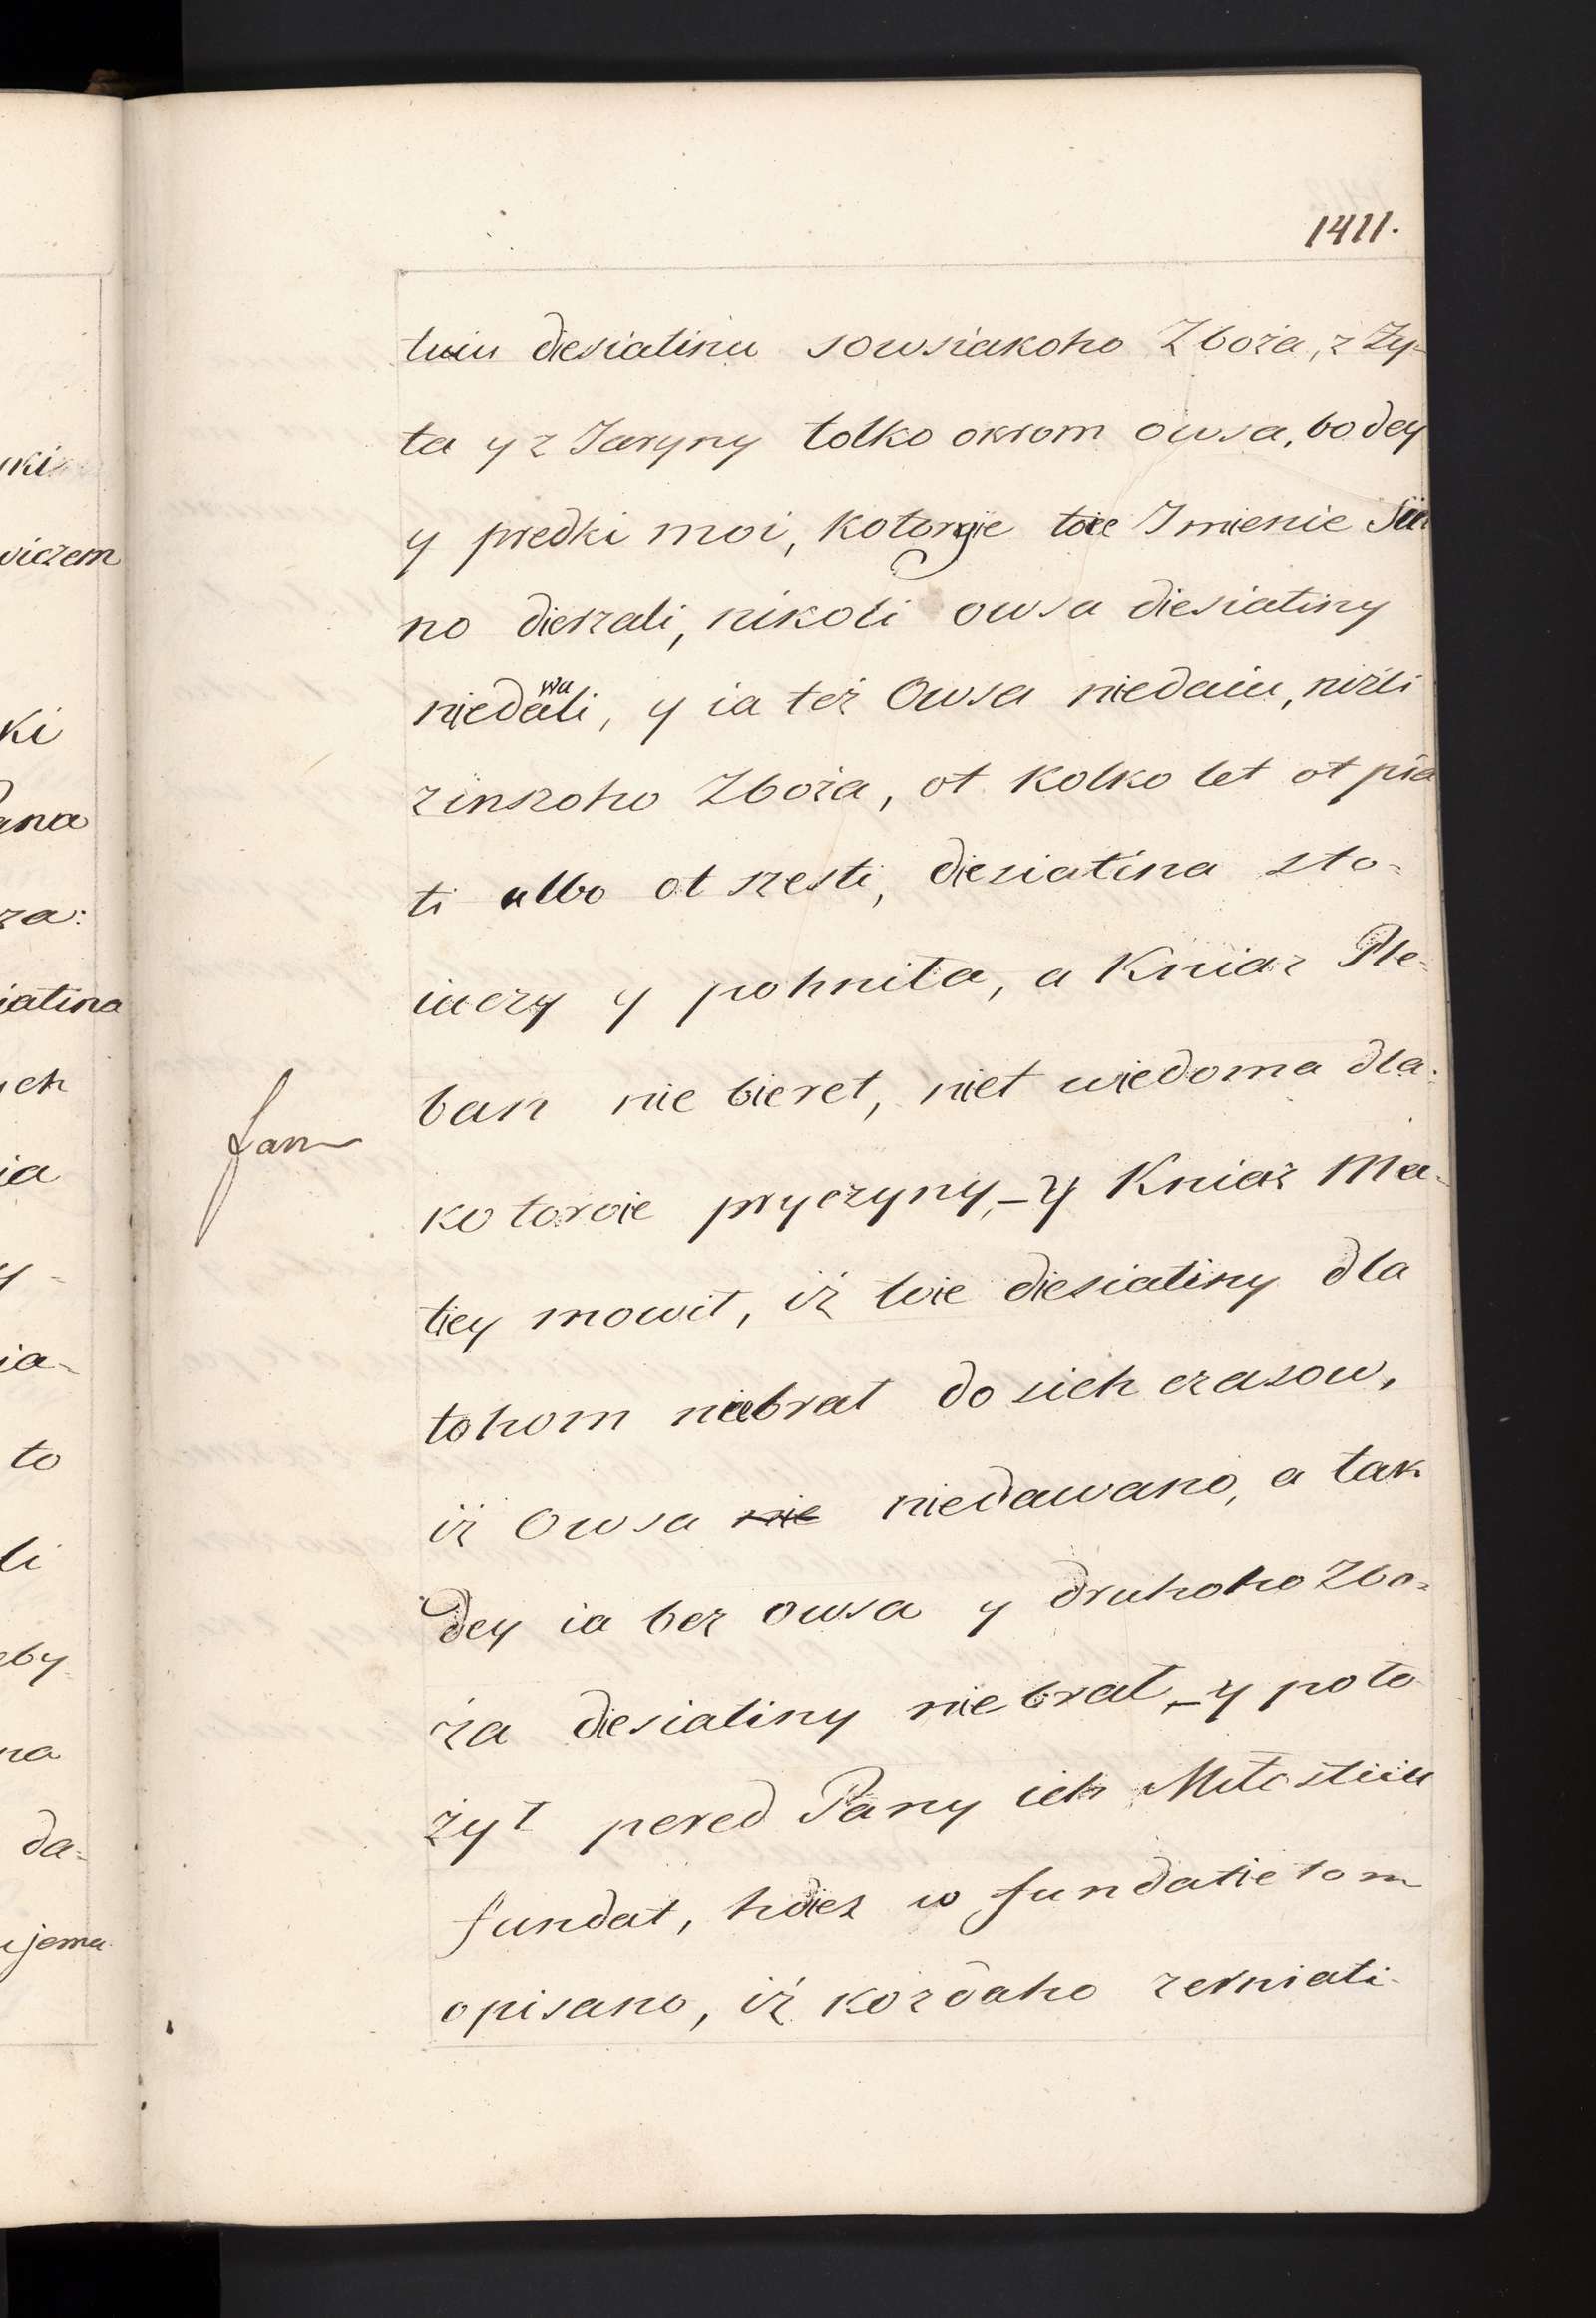 1411.
tuiu diesiatinu sowsiakoho Zboża, z Ży-
ta y z Jaryny tolko okrom owsa, bo dey
y predki moi, kotoryie toie Imienie Siu
no dierzali, nikoli owsa diesiatiny
niedawali, y ia też Owsa niedaiu, niżli
z inszoho Zboża, ot kolko let ot pia
ti albo ot szesti, diesiatina sto-
iuczy y pohniła, a Kniaz Ple-
ban nie bieret, niet wiedoma dla
kotoroie pryczyny,_y Kniaź Ma-
tiey mowił, iż toie diesiatiny dla
tohom niebrał do sich czasow,
iż Owsa nie niedawano, a tak
dey ia bez owsa y druhoho Zbo-
ża diesiatiny nie brał,_y poło
żył pered Pany ich Miłostiu
fundat, hdież w fundatie tom
opisano, iż kożdaho zerniati-
fam
uki
wiczem
ki
Pana
za:
iatina
ych
ia
y-
ia-
to
li
eby
na
da-
ujema